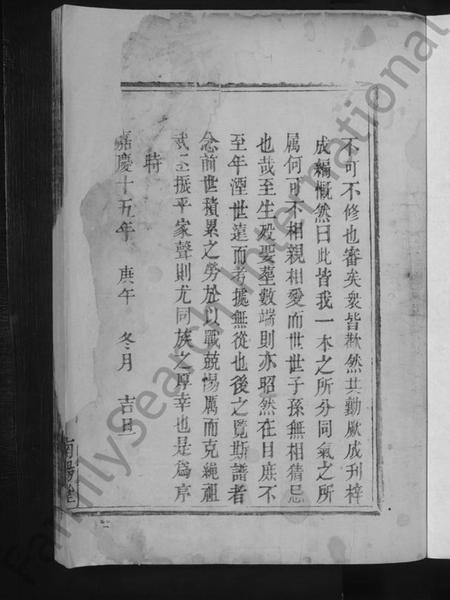 不可不修也審矣衆皆歡然共勷厥成刊梓
成編慨然曰此皆我一本之所分同氣之所
属何可不相親相愛而世世子孫無相猜忌
也哉至生殁娶墓數端則亦昭然在目庶不
至年湮世遠而考據無從也後之覽斯譜者
念前世積累之勞於以戰兢惕厲而克繩祖
武丕振乎家聲則尤同族之厚幸也是爲序
時
嘉慶十五年 庚午 冬月 吉旦
南陽堂
FamilySearch International